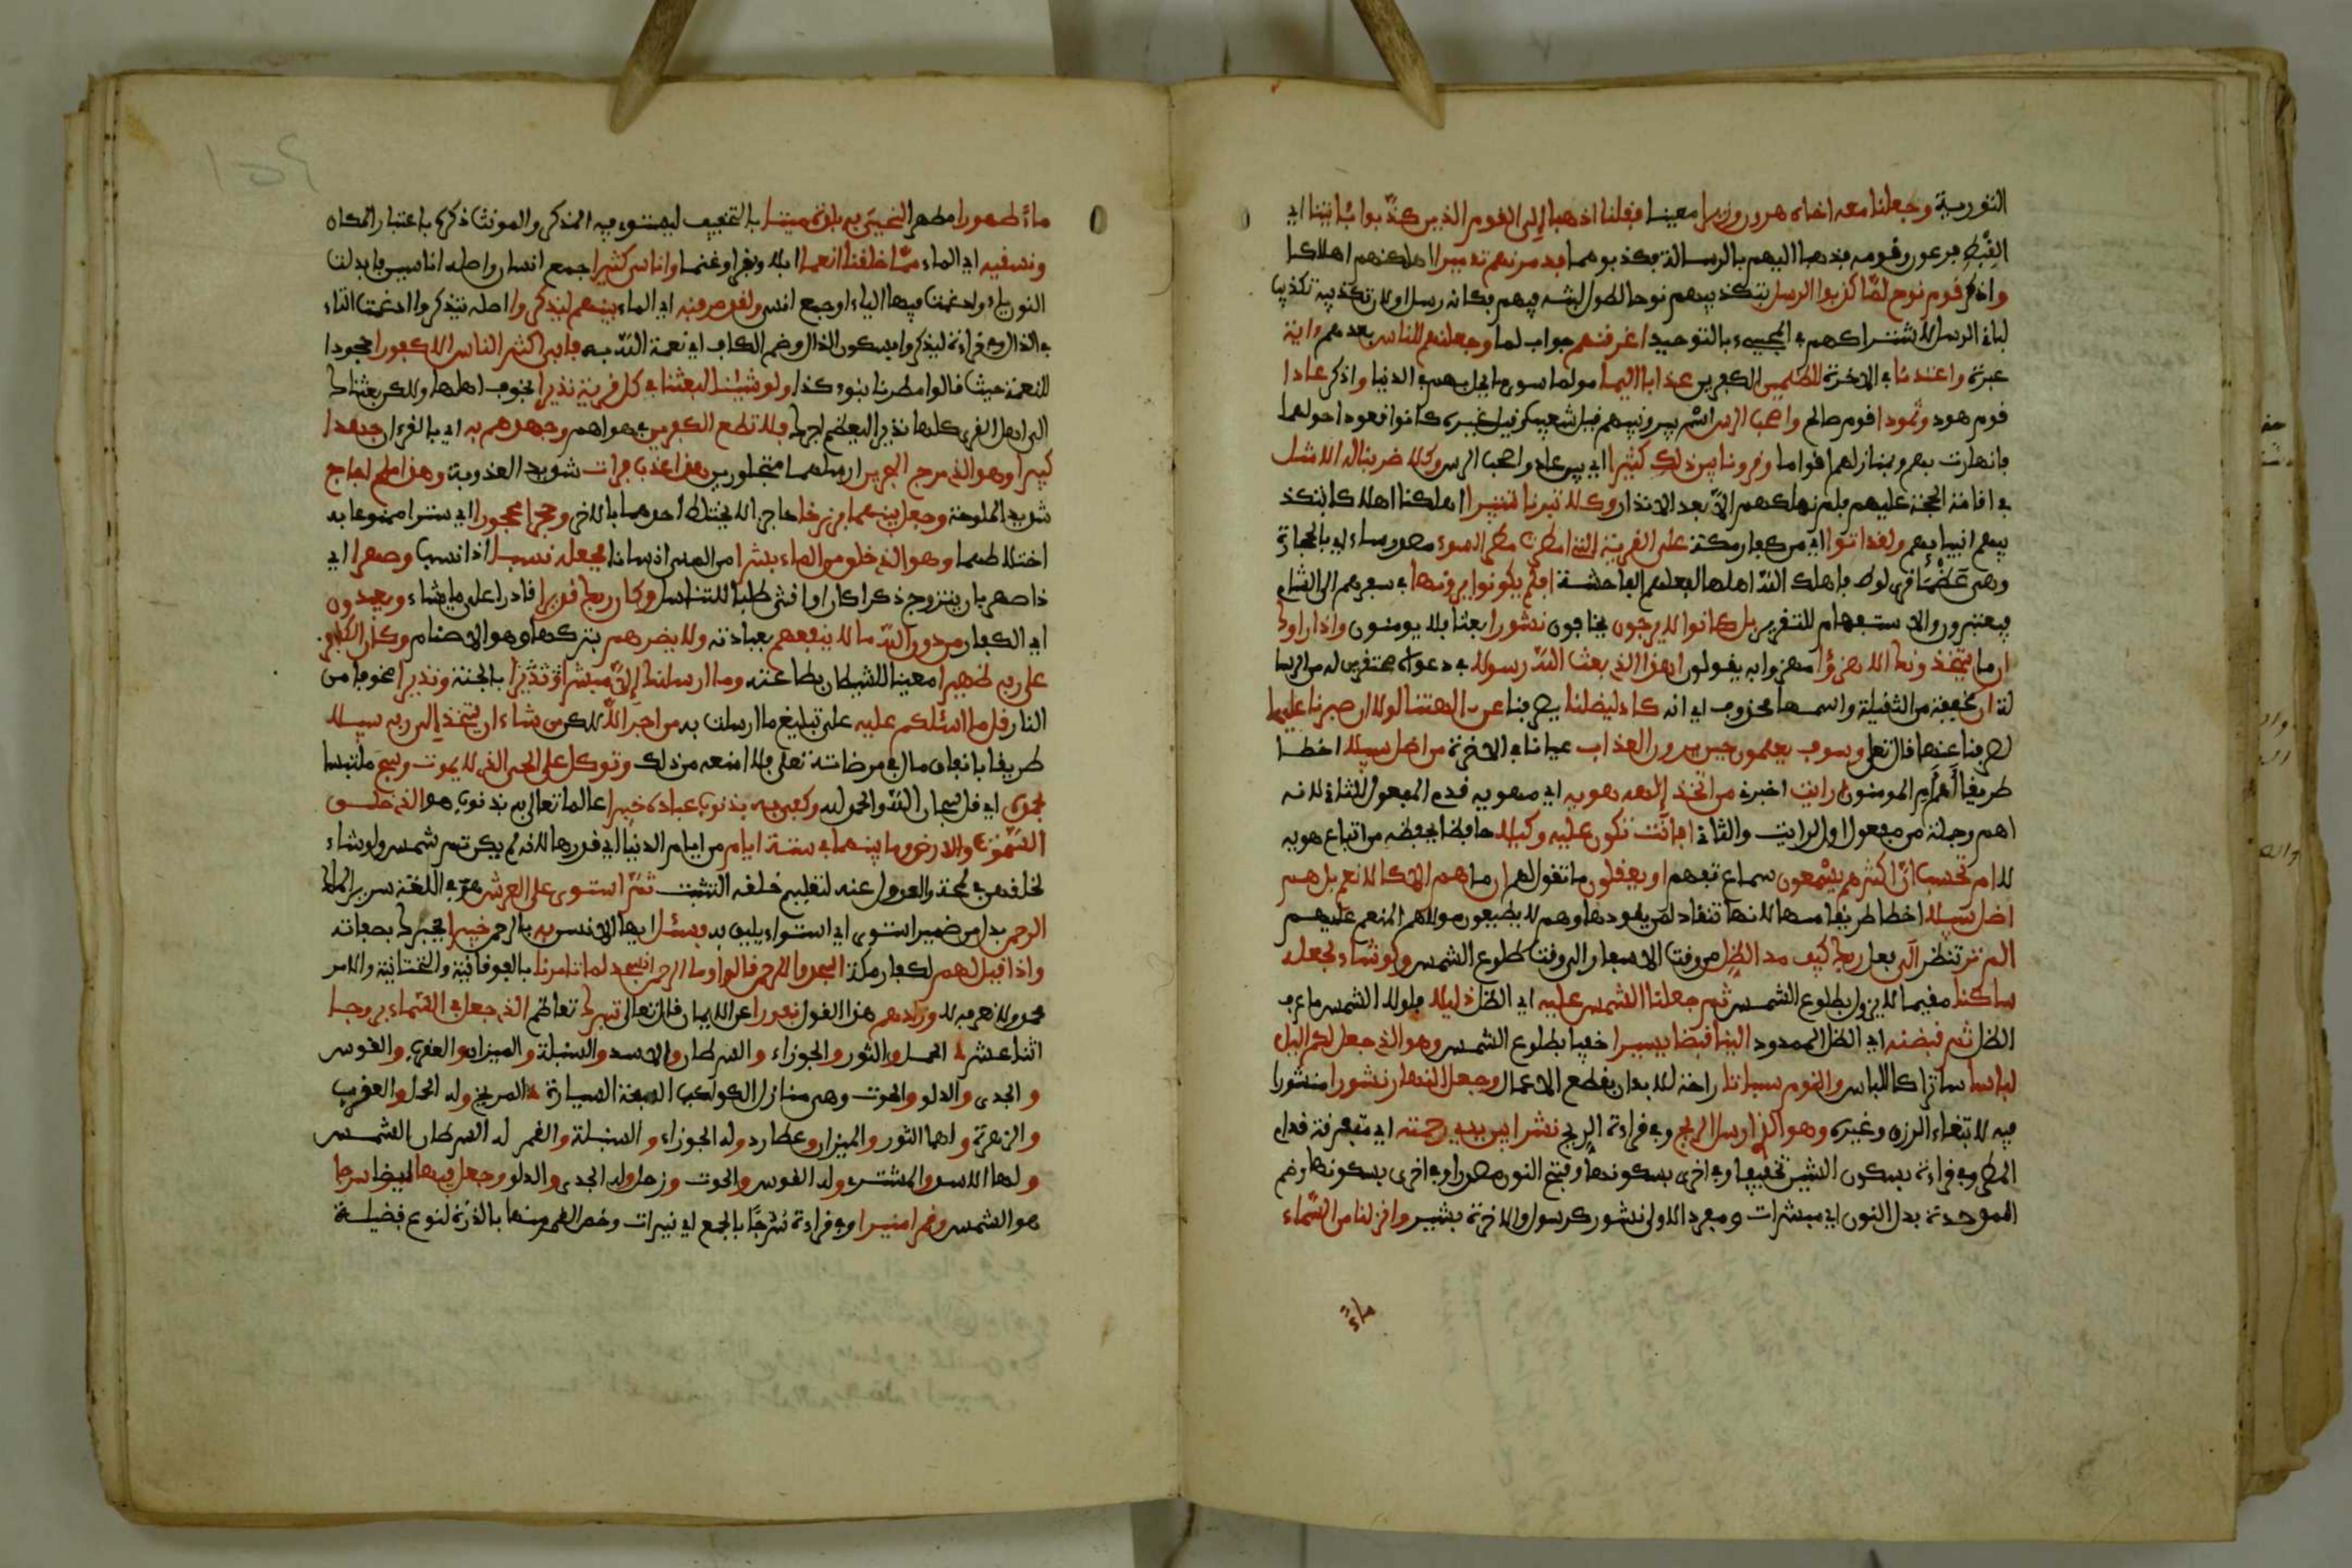 التورية وجعلنا معه اخاه هرون وزيرا معينا فقلنا اذهبا الى القوم الذين كذبوا بئايتنا اي
القبط فرعون وقومه فذهبا اليهم بالرسالة فكذبوهما فدمرنهم تدميرا اهلكنهم اهلاكا
واذكر قوم نوح لما كذبوا الرسل بتكذيبهم نوحا لطول لبثه فيهم فكانه رسل اولان تكذيبه تكذيب
لباقي الرسل للاشتراكهم في المجيء بالتوحيد اغرقنهم جواب لما وجعلنهم للناس بعدهم ءاية
عبرة واعتدنا في الاخرة للظلمين الكفرين عذابا اليما مولما سوى ما يحل بهم في الدنيا واذكر عادا
قوم هود وثمودا قوم صالح واصحب الرس اسم بير ونبيهم قيل شعيب وقيل غيره كانوا قعودا حولها
فانهارت بهم وبمنازلهم اقواما وقرونا بين ذلك كثيرا اي بين عاد واصحب الرس وكلا ضربنا له الامثل
في اقامة الحجة عليهم فلم نهلكهم الا بعد الانذار وكلا تبرنا تتبيرا اهلكنا اهلاكا بتكذ
يبهم انبياءهم ولقد اتوا اي مر كفار مكة على القرية التي امطرت مطر السوء مصدر ساء اي بالحجارة
وهي عظمى قرى لوط فاهلك الله اهلها لفعلهم الفاحشة افلم يكونوا يرونها في سفرهم الى الشام
فيعتبرون والاستفهام للتقرير بل كانوا لا يرجون يخافون نشورا بعثا فلا يومنون واذا راوك
ان ما يتخذونك الا هزؤا مهزوا به يقولون اهذا الذي بعث الله رسولا في دعواه محتقرين له عن الرسا
لة ان مخففة من الثقيلة واسمها محذوف اي انه كاد ليضلنا يصرفنا عن الهتنا لولا ان صبرنا عليها
لصرفنا عنها قال تعلى وسوف يعلمون حين يرون العذاب عيانا في الاخرة من اضل سبيلا اخطا
طريقا اهم ام المومنون ارايت اخبرني من اتخذ الهه هويه اي مهويه قدم المفعول الثاني لانه
اهم وجملة من مفعول اول لرايت والثاني افانت تكون عليه وكيلا حافظا يحفظه من اتباع هويه
لا ام تحسب ان اكثرهم يسمعون سماع تفهم او يعقلون ما تقول لهم ان ما هم الا كالانعم بل هم
اضل سبيلا اخطا طريقا منها لانها تنقاد لمن يقودها وهم لا يطيعون مولاهم المنعم عليهم
الم تر تنظر الى فعل ربك كيف مد الظل من وقت الاسفار الى وقت طلوع الشمس ولو شاء لجعله
ساكنا مقيما لا يزول بطلوع الشمس ثم جعلنا الشمس عليه اي الظل دليلا فلولا الشمس ما عرف
الظل ثم قبضنه اي الظل الممدود الينا قبضا يسيرا خفيا بطلوع الشمس وهو الذي جعل لكم اليل
لباسا ساترا كاللباس والنوم سباتا راحة للابدان بقطع الاعمال وجعل النهار نشورا منشورا
فيه لابتغاء الرزق وغيره وهو الذي ارسل الريح وفي قراءة الريح نشرا بين يدي رحمته اي متفرقة قدام
المطر وفي قراءة بسكون الشين تخفيفا وفي اخرى بسكونها وفتح النون مصدرا وفي اخرى بسكونها وضم
الموحدة بدل النون اي مبشرات ومفرد الاولى نشور كرسول والاخرة بشير وانزلنا من السماء
ماء
ماء طهورا مطهرا لنحيي به بلدة ميتا بالتخفيف ليستوي فيه المذكر والمونث ذكره باعتبار المكان
ونسقيه اي الماء مما خلقنا انعما ابلا وبقرا وغنما واناسي كثيرا جمع انسان واصله اناسين فابدلت
النون ياء وادغمت فيها الياء او جمع انسي ولقد صرفنه اي الماء بينهم ليذكروا اصله يتذكروا ادغمت التاء
في الذال وفي قراءة ليذكروا بسكون الذال وضم الكاف اي نعمة الله به فابى اكثر الناس الا كفورا جحودا
للنعمة حيث قالوا مطرنا بنوء كذا ولو شئنا لبعثنا في كل قرية نذيرا يخوف اهلها ولكن بعثناك
الى اهل القرى كلها نذيرا ليعظم اجرك فلا تطع الكفرين في هواهم وجهدهم به اي بالقرءان جهادا
كبيرا وهو الذي مرج البحرين ارسلهما متجاورين هذا عذب فرات شديد العذوبة وهذا ملح اجاج
شديد الملوحة وجعل بينهما برزخا حاجزا لا يختلط احدهما بالاخر وحجرا محجورا اي سترا ممنوعا به
اختلاطهما وهو الذي خلق من الماء بشرا من المني انسانا فجعله نسبا ذا نسب وصهرا اي
ذا صهر بان يتزوج ذكرا كان او انثى طلبا للتناسل وكان ربك قديرا قادرا على ما يشاء ويعبدون
اي الكفار من دون الله ما لا ينفعهم بعبادته ولا يضرهم بتركها وهو الاصنام وكان الكافر
على ربه ظهيرا معينا للشيطان بطاعته وما ارسلنك الا مبشرا ونذيرا بالجنة ونذيرا مخوفا من
النار قل ما اسئلكم عليه على تبليغ ما ارسلت به من اجر الا لكن من شاء ان يتخذ الى ربه سبيلا
طريقا بانفاق مال في مرضاته تعلى فلا امنعه من ذلك وتوكل على الحي الذي لا يموت وسبح ملتبسا
بحمده اي قل سبحان الله والحمد لله وكفى به بذنوب عباده خبيرا عالما تعالى به بذنوب هو الذي خلق
السموت والارض وما بينهما في ستة ايام من ايام الدنيا اي في قدرها لانه لم يكن ثم شمس ولو شاء
لخلقهن في لمحة والعدول عنه لتعليم خلقه التثبت ثم استوى على العرش هو في اللغة سرير الملك
الرحمن بدل من ضمير استوى اي استواء يليق به فسئل ايها الانسن به بالرحمن خبيرا يخبرك بصفاته
واذا قيل لهم لكفار مكة اسجدوا للرحمن قالوا وما الرحمن انسجد لما تامرنا بالفوقانية والتحتانية والامر
محمد ولا نعرفه لا وزادهم هذا القول نفورا عن الايمان قال تعالى تبرك تعاظم الذي جعل في السماء بروجا
اثناعشر الحمل والثور والجوزاء والسرطان والاسد والسنبلة والميزان والعقرب والقوس
والجدي والدلو والحوت وهي منازل الكواكب السبعة السيارة المريخ وله الحمل والعقرب
والزهرة ولها الثور والميزان وعطارد وله الجوزاء والسنبلة والقمر له السرطان الشمس
ولها الاسد والمشترى وله القوس والحوت وزحل وله الجدي والدلو وجعل فيها ايضا سرجا
هو الشمس وقمرا منيرا وفي قراءة سرجا بالجمع اي نيرات وخص القمر منها بالذكر لنوع فضيلة